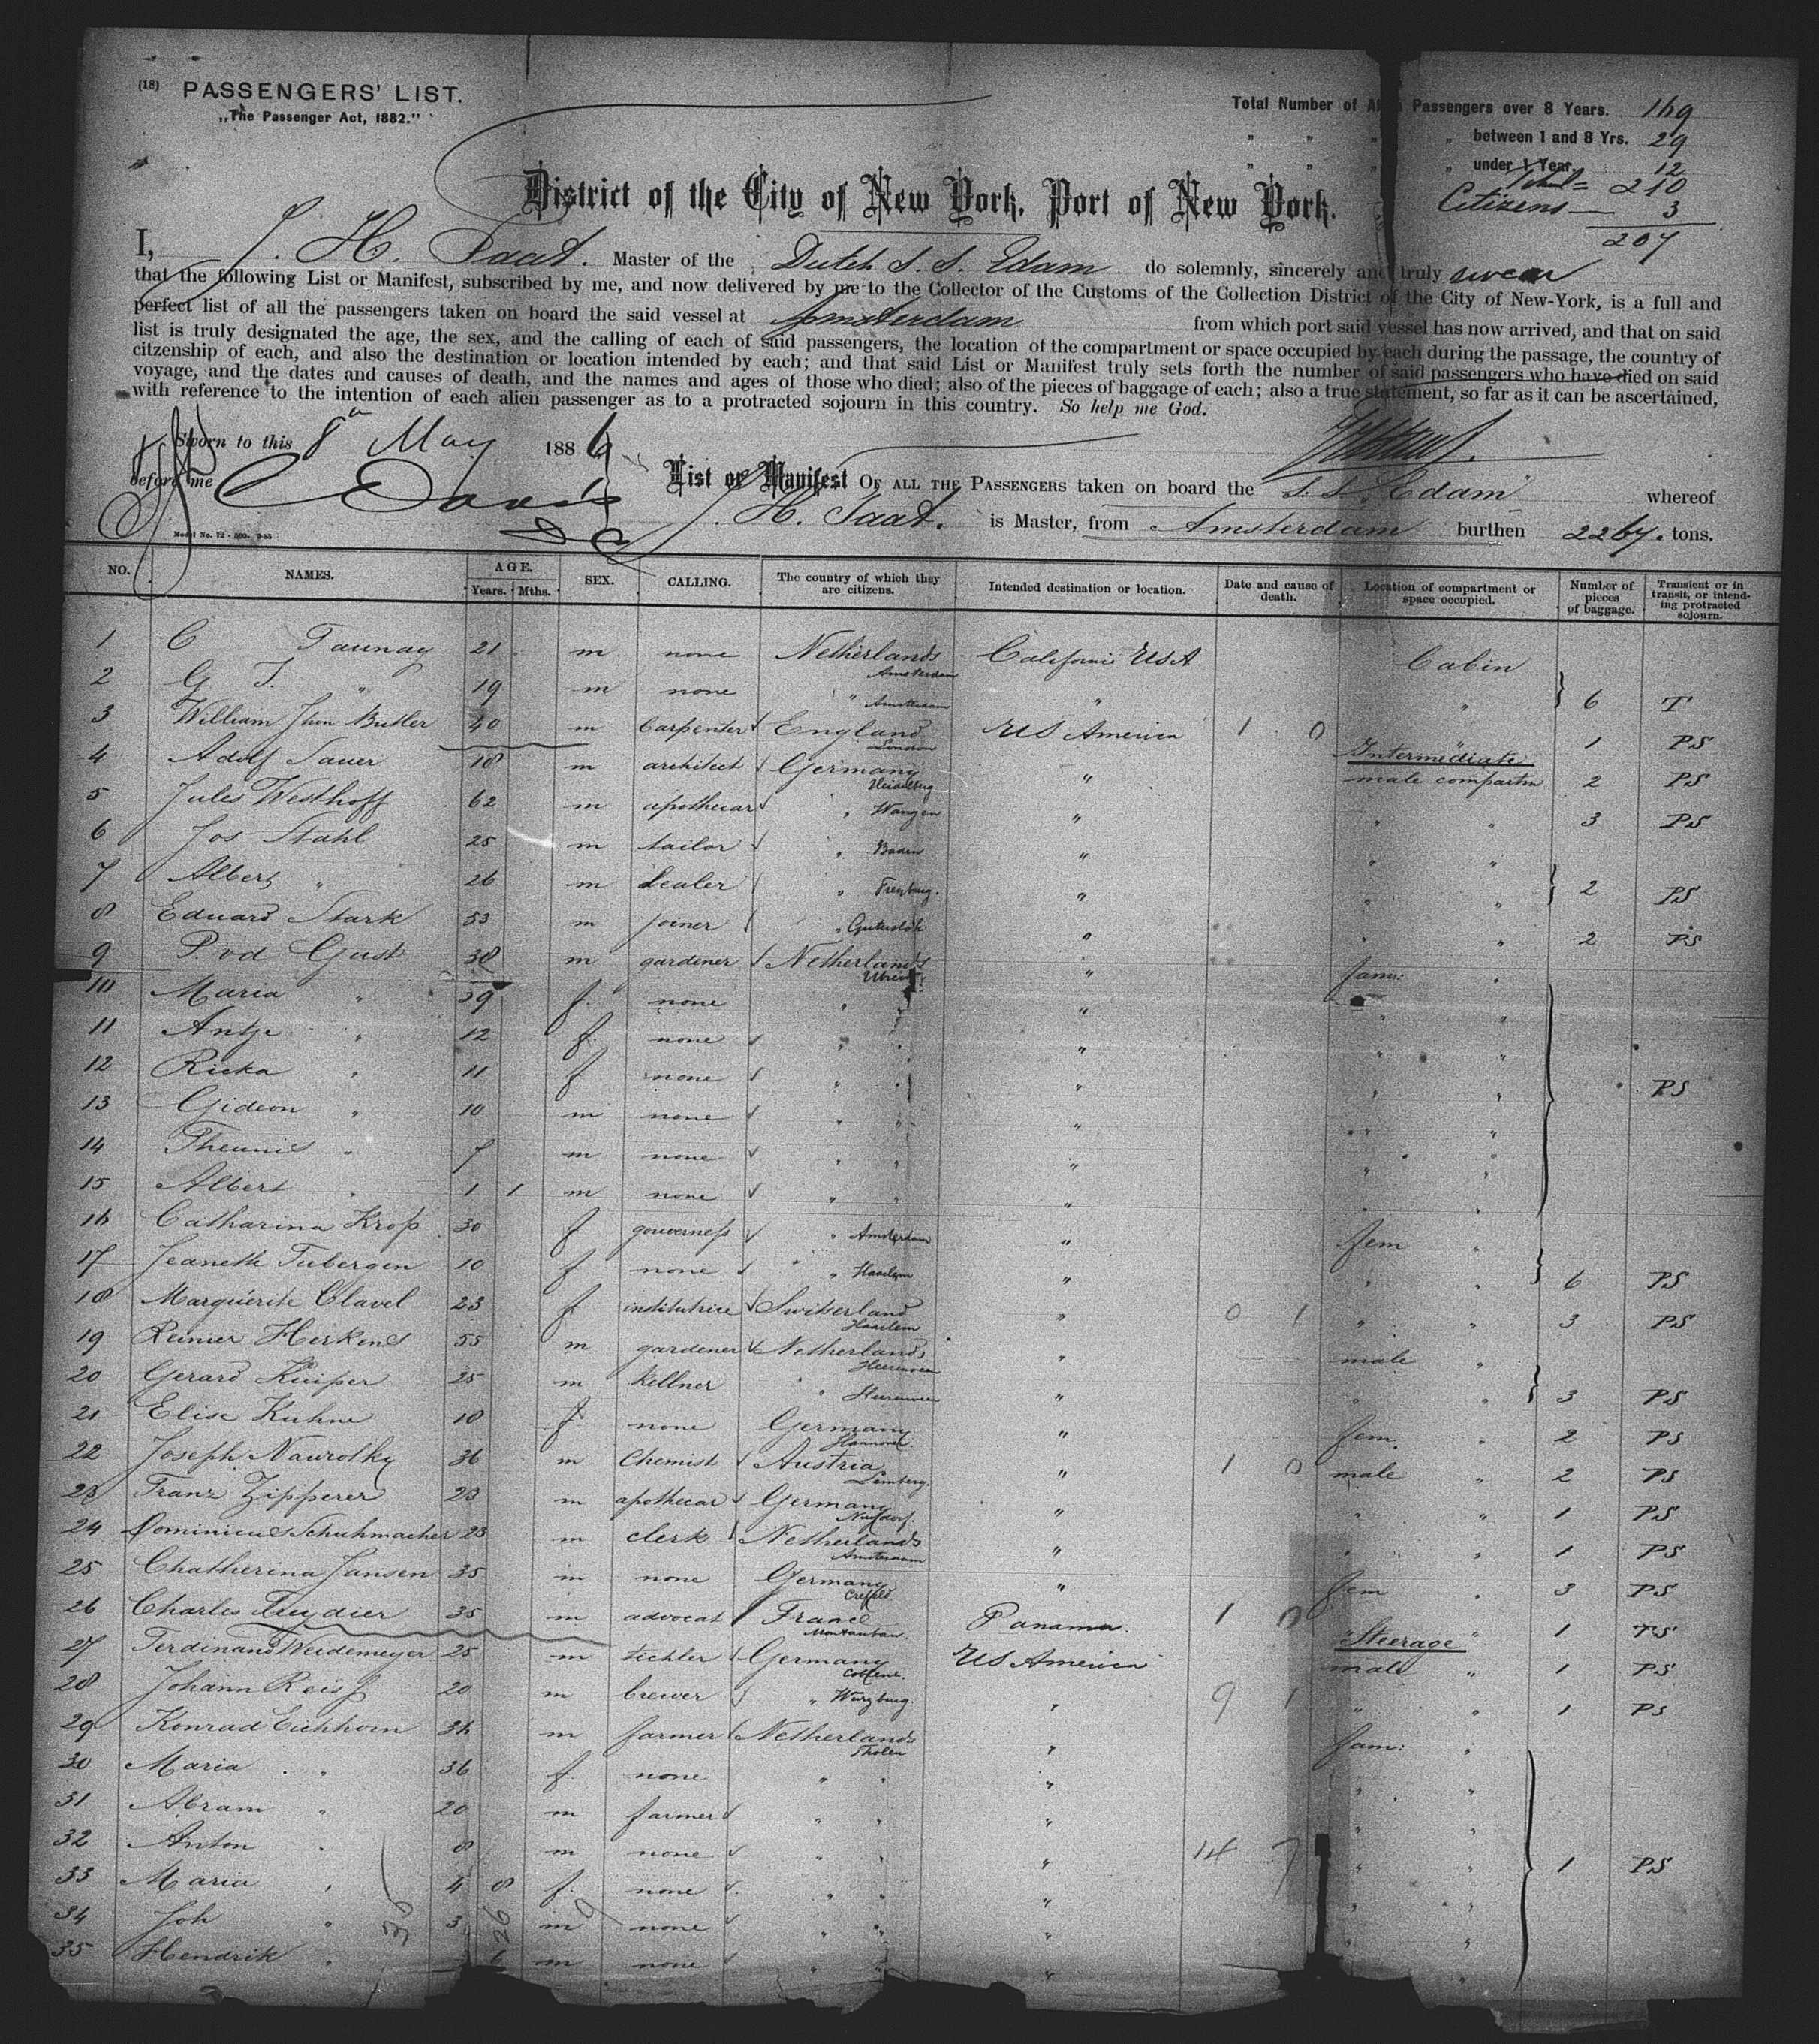 (18) PASSENGERS' LIST.
„The Passenger Act, 1882."
Total Number of Al Passengers over 8 Years. 169
" " " " between 1 and 8 Yrs. 29
" " " " under 1 Year 12
Total = 210
Citizens — 3
207
District of the City of New York, Port of New York.
I, J. H. Taat. Master of the Dutch S. S. Edam do solemnly, sincerely and truly swear
that the following List or Manifest, subscribed by me, and now delivered by me to the Collector of the Customs of the Collection District of the City of New-York, is a full and
perfect list of all the passengers taken on board the said vessel at Amsterdam from which port said vessel has now arrived, and that on said
list is truly designated the age, the sex, and the calling of each of said passengers, the location of the compartment or space occupied by each during the passage, the country of
citzenship of each, and also the destination or location intended by each; and that said List or Manifest truly sets forth the number of said passengers who have died on said
voyage, and the dates and causes of death, and the names and ages of those who died; also of the pieces of baggage of each; also a true statement, so far as it can be ascertained,
with reference to the intention of each alien passenger as to a protracted sojourn in this country. So help me God.
Sworn to this 8th May 1886
before me C Davis
List or Manifest OF ALL THE PASSENGERS taken on board the S. S. Edam whereof
J. H. Taat. is Master, from Amsterdam burthen 2267. tons.
Model No. 12 - 500- 9-85
NO. NAMES. AGE. Years. Mths. SEX. CALLING. The country of which they are citizens. Intended destination or location. Date and cause of death. Location of compartment or space occupied. Number of pieces of baggage. Transient or in transit, or intending protracted sojourn.
1 C Taunay 21 m none Netherlands Amsterdam California USA Cabin
2 G J. " 19 m none " Amsterdam " " 6 T
3 William Jhon Butler 40 m Carpenter England London US America 1 0 " 1 PS
Intermediate
4 Adolf Sauer 18 m architect Germany Heidelberg " male compartm 2 PS
5 Jules Westhoff 62 m apothecar " Wangen " " " 3 PS
6 Jos Stahl 25 m tailor " Baden " " "
7 Albert " 26 m dealer " Freyburg. " " " 2 PS
8 Eduard Stark 53 m joiner " Gutersloh " " " 2 PS
9 P. vd Gust 38 m gardener Netherlands Utrecht " fam: "
10 Maria " 39 f. none " " " "
11 Antje " 12 f. none " " " " "
12 Ricka " 11 f none " " " " " PS
13 Gideon " 10 m none " " " " "
14 Theunis " 7 m none " " " " "
15 Albert " 1 1 m none " " " " "
16 Catharina Krop 30 f gouverness " Amsterdam " fem "
17 Jeaneth Tubergen 10 f none " Haarlem " " " 6 PS
18 Marguérite Clavel 23 f institutrice Switserland Haarlem " 0 1 " " 3 PS
19 Reinier Herkens 55 m gardener Netherlands Heerenveen " male "
20 Gerard Kuiper 25 m Kellner " Heerenveen " " " 3 PS
21 Elise Kuhne 18 f none Germany Hannover. " fem. " 2 PS
22 Joseph Nawrotky 36 m Chemist Austria Lemberg. " 1 0 male " 2 PS
23 Franz Zipperer 23 m apothecar Germany " " " 1 PS
24 Dominicus Schuhmacher 23 m clerk Netherlands Amsterdam " " " 1 PS
25 Chatherina Jansen 35 m none Germany Crefeld " fem " 3 PS
26 Charles Treydier 35 m advocat France Montauban Panama. 1 0 " " 1 TS
Steerage
27 Ferdinand Weidemeyer 25 m tichler Germany US America male " 1 PS
28 Johann Reiss 20 m brewer " Wurzburg. " 9 1 " " 1 PS
29 Konrad Eichhorn 36 m farmer Netherlands Tholen " fam: "
30 Maria " 36 f. none " " " " "
31 Abram " 20 m farmer " " " " "
32 Anton " 8 m none " " " 14 7 " " 1 PS
33 Maria " 4 8 f. none " " " " "
34 Joh " 3 m none " " " " "
35 Hendrik " m none " " " "